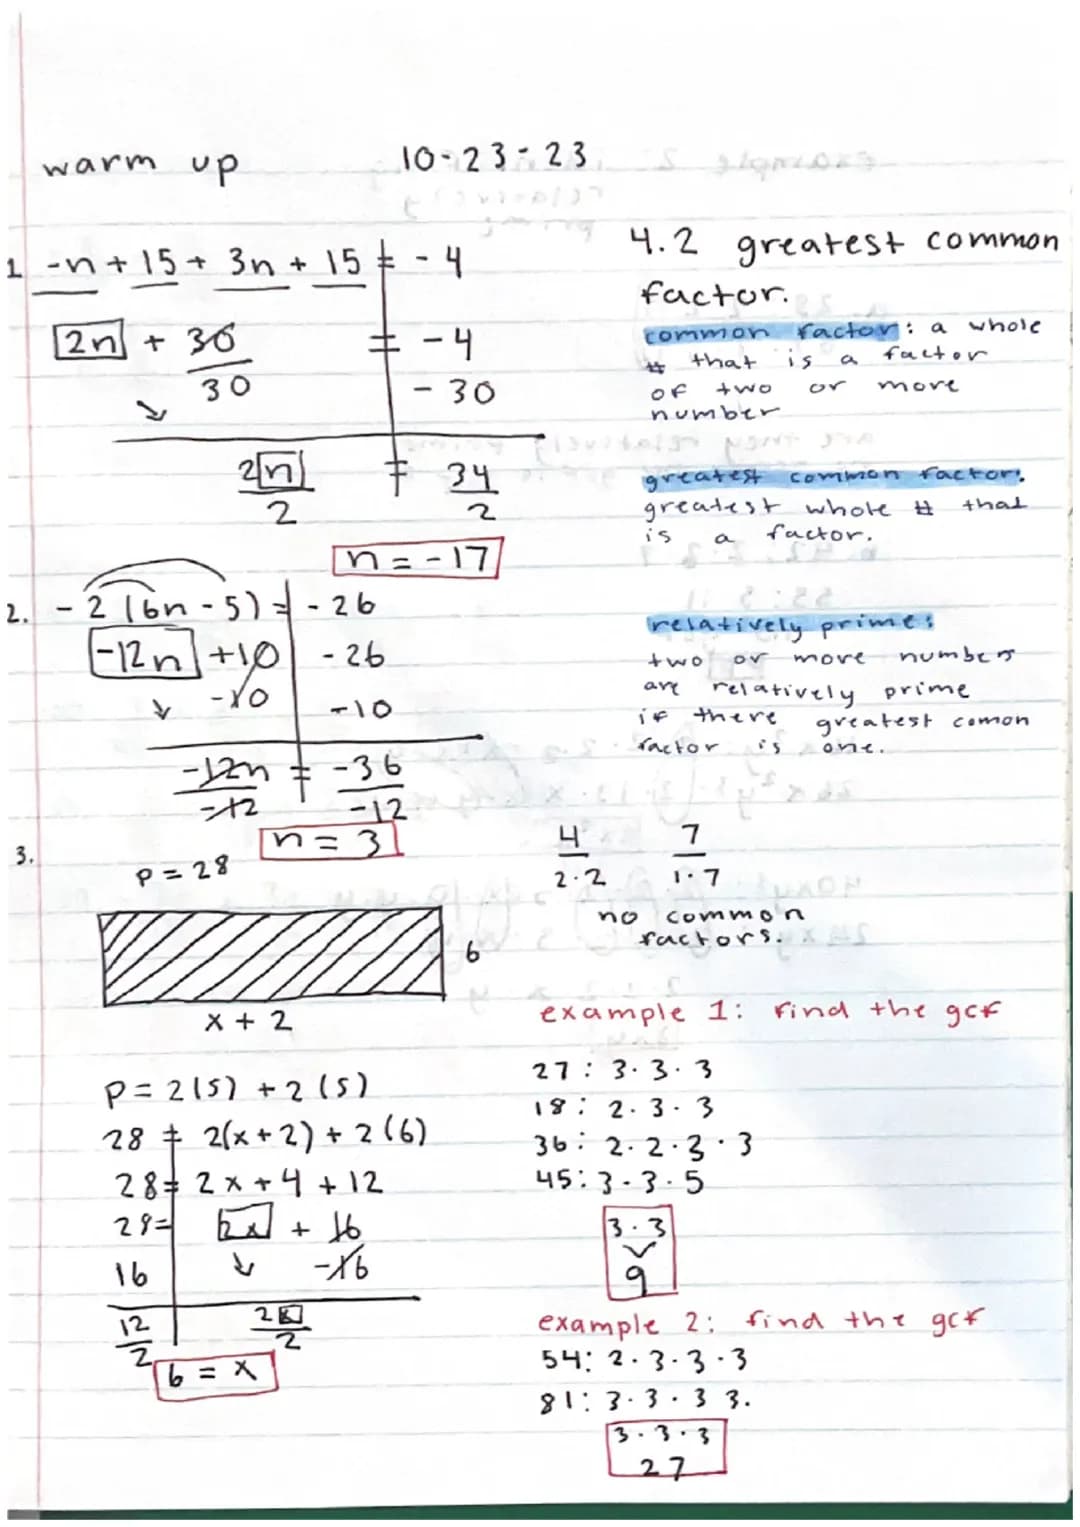 warm up
10-23-23
1 -n + 15 + 3n + 15 = -4
2n + 30 = -4
30 - 30
2n = 34
2 2
n = -17
2. -2(6n - 5) = -26
-12n + 10 -26
-10 -10
-12n = -36
-12 -12
n = 3
3.
P = 28
6
x + 2
P = 2(s) + 2(s)
28 = 2(x+2) + 2(6)
28 = 2x + 4 + 12
28 = 2x + 16
16 -16
12 2x
2 2
6 = x
4.2 greatest common
factor.
common factor: a whole
# that is a factor
of two or more
number
greatest common factor:
greatest whole # that
is a factor.
relatively prime:
two or more numbers
are relatively prime
if there greatest comon
factor is one.
4 7
2·2 1·7
no common
factors.
example 1: find the gcf
27: 3·3·3
18: 2·3·3
36: 2·2·3·3
45: 3·3·5
3·3
9
example 2: find the gcf
54: 2·3·3·3
81: 3·3·3 3.
3·3·3
27